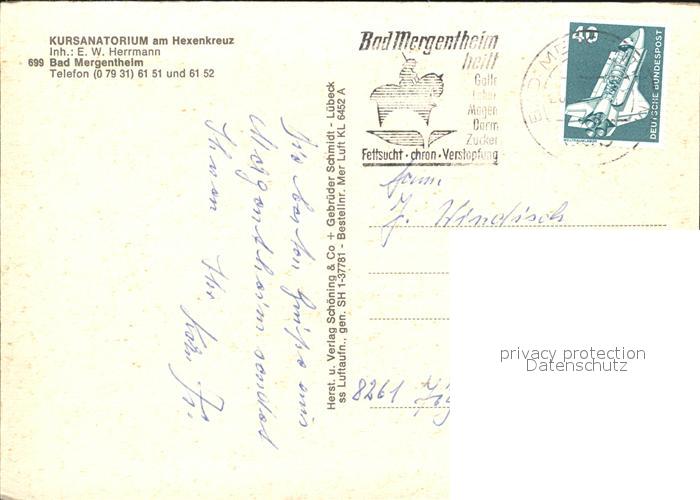 KURSANATORIUM am Hexenkreuz
Inh.: E. W. Herrmann
699 Bad Mergentheim
Telefon (0 79 31) 61 51 und 61 52
Bad Mergentheim
heilt
Galle
Leber
Magen
Darm
Zucker
Fettsucht · chron · Verstopfung
40
DEUTSCHE BUNDESPOST
Herst. u. Verlag Schöning & Co + Gebrüder Schmidt - Lübeck
ss Luftaufn., gen. SH 1-37781 - Bestellnr. Mer Luft KL 6452 A
Die besten Grüße aus
Mergentheim sendet
Ihnen Ihr
Fam.
J. Windisch
8261
privacy protection
Datenschutz